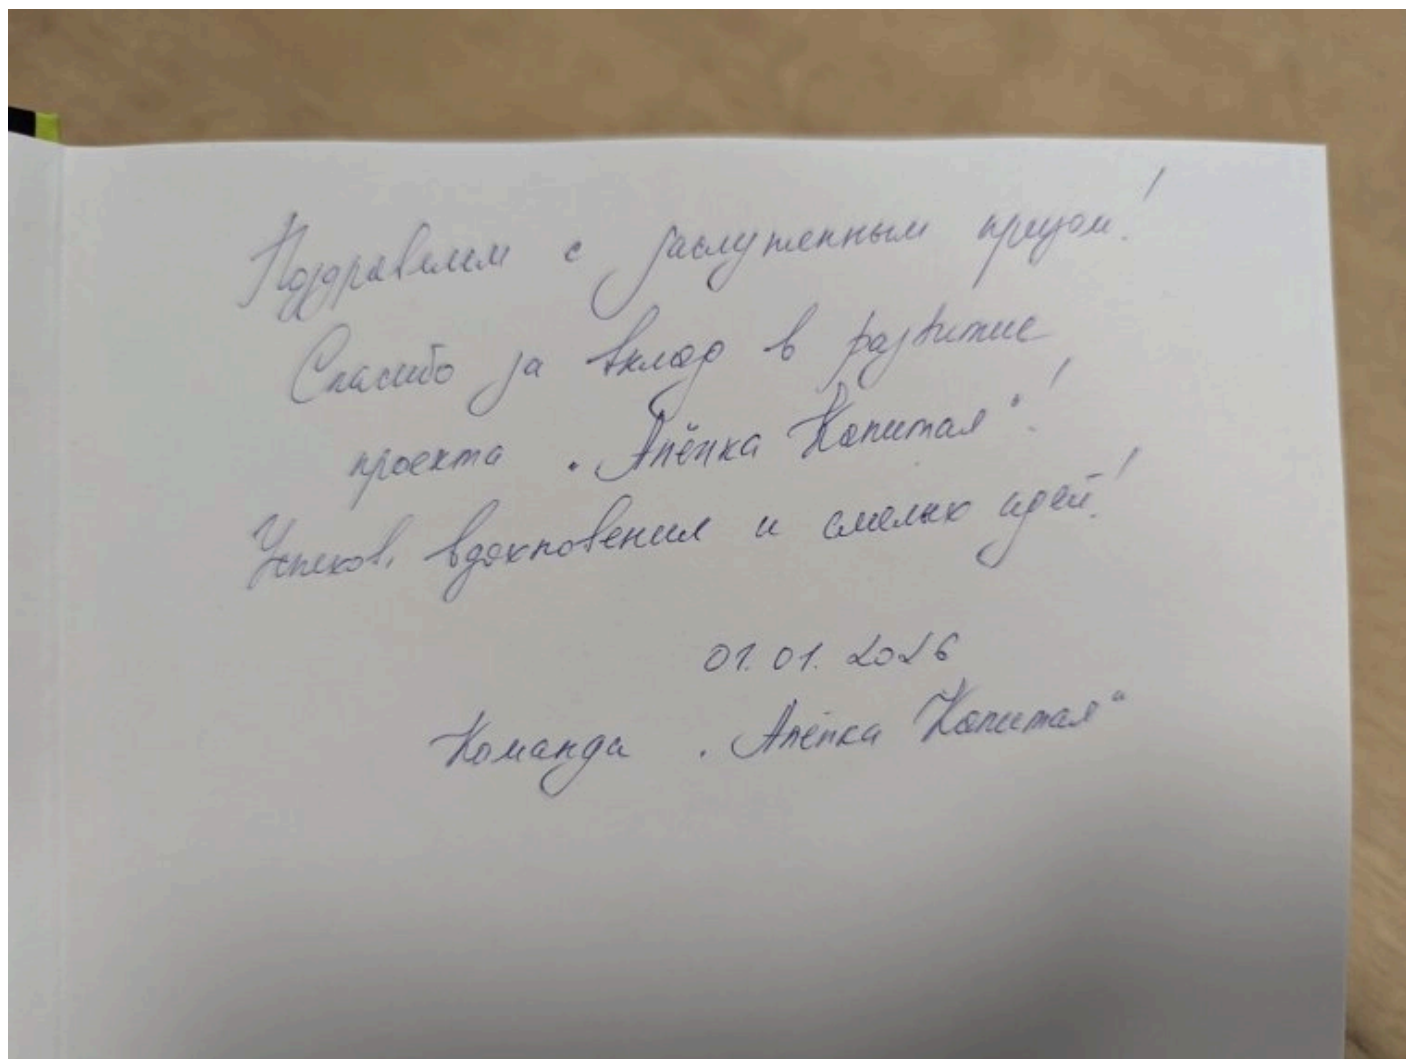 Поздравляем с заслуженным призом!
Спасибо за вклад в развитие
проекта "Апёпка Капитал"!
Успехов, вдохновения и смелых идей!
01.01.2026
Команда "Апёпка Капитал"